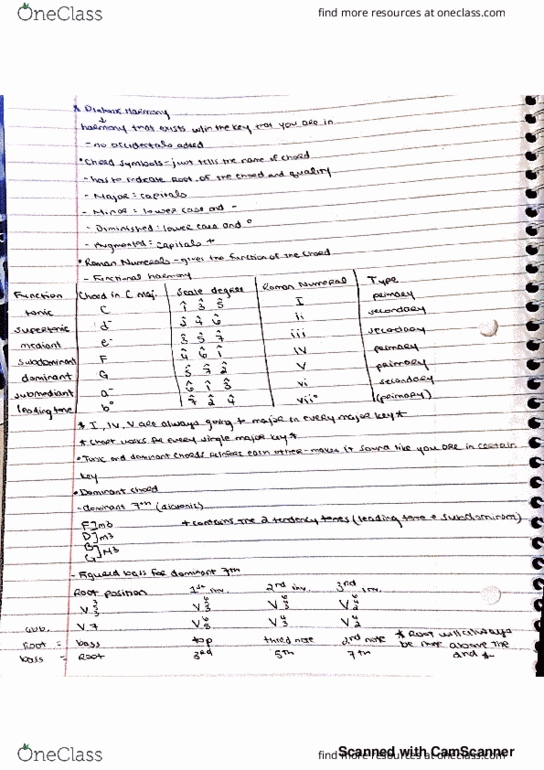 OneClass
find more resources at oneclass.com
* Diatonic Harmony
harmony that exists w/in the key that you are in
- no accidentals added
• Chord symbols - just tells the name of chord
- has to indicate Root of the chord and quality
- Major = capitals
- Minor = lower case and -
- Diminished = lower case and °
- Augmented = capitals +
• Roman Numerals - gives the function of the chord
- Functional harmony
Function Chord in C maj. Scale degree Roman Numeral Type
tonic C 1̂ 3̂ 5̂ I primary
supertonic d⁻ 2̂ 4̂ 6̂ ii secondary
mediant e⁻ 3̂ 5̂ 7̂ iii secondary
subdominant F 4̂ 6̂ 1̂ IV primary
dominant G 5̂ 7̂ 2̂ V primary
submediant a⁻ 6̂ 1̂ 3̂ vi secondary
leading tone b° 7̂ 2̂ 4̂ vii° (primary)
* I, IV, V are always going to major in every major key *
* chart works for every single major key *
• Tonic and dominant chords reinforce each other - makes it sound like you are in certain
key
• Dominant chord
- dominant 7th (diatonic)
F]m3 * contains the 2 tendency tones (leading tone + subdominant)
D]m3
B]M3
G
- Figured bass for dominant 7th
Root position 1st inv. 2nd inv. 3rd inv.
V 7
Root = bass top third note 2nd note * Root will always
bass = Root 3rd 5th 7th be note above the
OneClass
find more resources at oneclass.com
Scanned with CamScanner